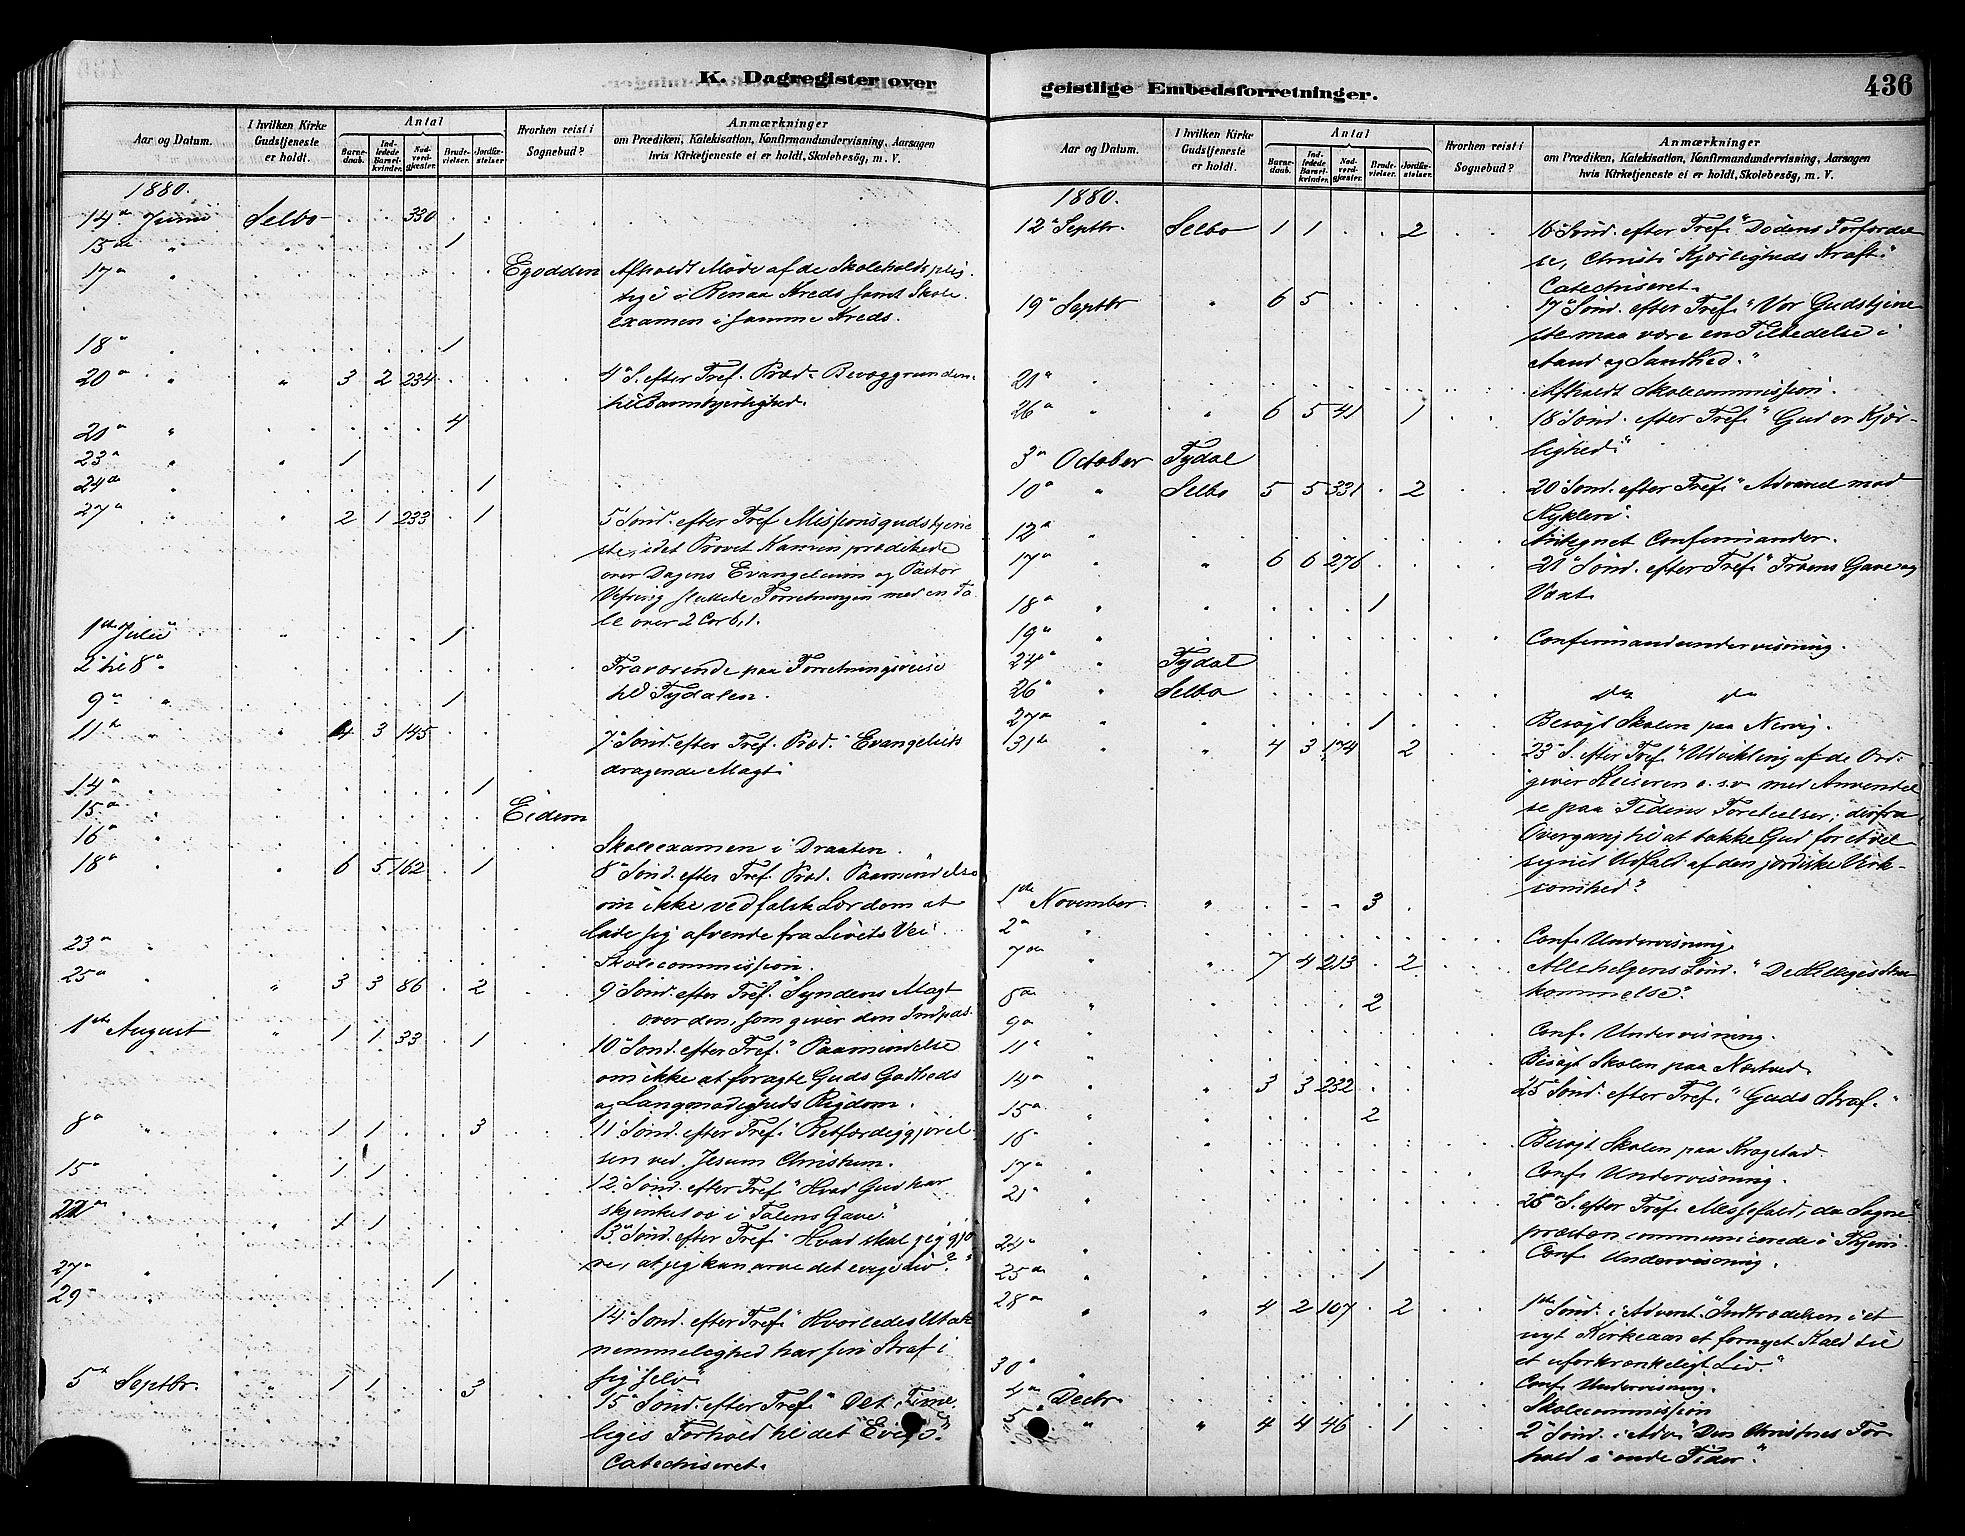 K. Dagregister over
Aar og Datum.
I hvilken Kirke Gudstjeneste er holdt.
Antal
Barnedaab.
Indledede Barselkvinder.
Nadverdgjæster.
Brudevielser.
Jordfæstelser.
Hvorhen reist i Sognebud?
Anmærkninger
om Prædiken, Katekisation, Konfirmandundervisning, Aarsagen
hvis Kirketjeneste ei er holdt, Skolebesög, m. V.
1880.
14de Juni Selbo 330
15de " " 1
17de " Egodden Afholdt Møde af de Skoleholdsplig-
tige i Renaa Kreds samt Skole
examen i samme Kreds.
18de " 1
20de " " 3 2 234 4de S. efter Tref. Præd. Bevæggrunden
til Barmhjertighed.
21de " 4
23de " " 1
24de " 1
27de " " 2 1 233 1 5 Sönd. efter Tref. Missionsgudstjene
ste, idet Provst prædikede
over Dagens Evangelium og Pastor
sluttede Forretningen med en Ta
le over 2 Cor 6,1.
1ste Juli " 1
2 til 8de Fraværende paa Forretningsreise
til Tydalen.
9de " 1
11te " " 4 3 145 7de Sönd. efter Tref. Præd. "Evangeliets
dragende Magt.
14de " 1
15de " Eidem
16de " Skoleexamen i Draaten.
18de " " 6 5 162 1 8de Sönd. efter Tref. Præd. Paamindelse
om ikke ved falsk Lærdom at
lade sig afvende fra Livets Vei.
23de " Skolecommission.
25de " " 3 3 86 2 9de Sönd. efter Tref. "Syndens Magt
over den, som giver den Indpas
1ste August " 1 1 33 1 10de Sönd. efter Tref. "Paamindelse
om ikke at foragte Guds Godheds
og Langmodigheds Rigdom.
8de " " 1 1 3 11 Sönd. efter Tref. "Retfærdiggjörel-
sen ved Jesum Christum.
15de " " 1 1 12 Sönd. efter Tref. "Hvad Gud har
skjenket os i Talens Gave."
22de " " 1 1 13de Sönd. efter Tref. "Hvad skal jeg gjö
re, at jeg kan arve det evige Liv?"
27de " 1
29de " 14de Sönd. efter Tref. "Hvorledes Utak
nemmelighed har sin Straf i
sig selv"
5te Septbr. " 1 1 3 15de Sönd. efter Tref. "Det Time
liges Forhold til det Evige."
Catechiseret.
geistlige Embedsforretninger.
436
Aar og Datum.
I hvilken Kirke Gudstjeneste er holdt.
Antal
Barnedaab.
Indledede Barselkvinder.
Nadverdgjæster.
Brudevielser.
Jordfæstelser.
Hvorhen reist i Sognebud?
Anmærkninger
om Prædiken, Katekisation, Konfirmandundervisning, Aarsagen
hvis Kirketjeneste ei er holdt, Skolebesög, m. V.
1880.
12te Septbr. Selbo 1 1 2 16 Sönd. efter Tref. "Dödens Forfærdel
se, Christi Kjærligheds Kraft."
Catechiseret.
19de Septbr " 6 5 17de Sönd. efter Tref. "Vor Gudstjene
ste maa være en Tilbedelse i
Aand og Sandhed."
21de " Afholdt Skolecommission.
26de " " 6 5 41 1 18de Sönd. efter Tref. "Gud er Kjær-
lighed."
3die October Tydal
10de " Selbo 5 5 331 2 20de Sönd. efter Tref. "Advarsel mod
Hykleri".
12te " Antegnet Confirmander.
17de " " 6 6 276 21de Sönd. efter Tref. "Troens Gave og
Vext.
18de " " 1
19de " Confirmandundervisning.
24de " Tydal
26de " Selbo do do
27de " " 1 Besögt Skolen paa Nervig.
31te " " 4 3 174 2 23de S. efter Tref. "Udvikling af de Ord:
giver Keiseren o. s. v. med Anvendel
se paa Tidens Foreteelser, derfra
Overgang til at takke Gud for et vel
signet Udfald af den jordiske Virk-
somhed".
1ste November " 3
2de " Conf. Undervisning.
7de " " 7 4 213 2 Allehelgens Sönd. "De Helliges
kommelse".
8de " 2
9de " Conf. Undervisning.
11te " Besögt Skolen paa Næstved.
14de " " 3 3 232 25 Sönd. efter Tref. "Guds Straf."
15de " " 2
16de " " Besögt Skolen paa Krogstad.
17de " " Conf. Undervisning.
21de " " 26de S. efter Tref. Messefald, da Sogne
præsten communicerede i
24de " Conf. Undervisning.
25de " " 1
28de " " 4 2 107 2 1ste Sönd. i Advent. "Indtrædelsen i et
nyt Kirkeaar et fornyet Kald til
et uforkrænkeligt Liv."
30te " Conf. Undervisning.
4de Decbr Skolecommission
5te " " 4 4 46 1 2de Sönd. i Adv. "Den Christnes For
hold i onde Tider."